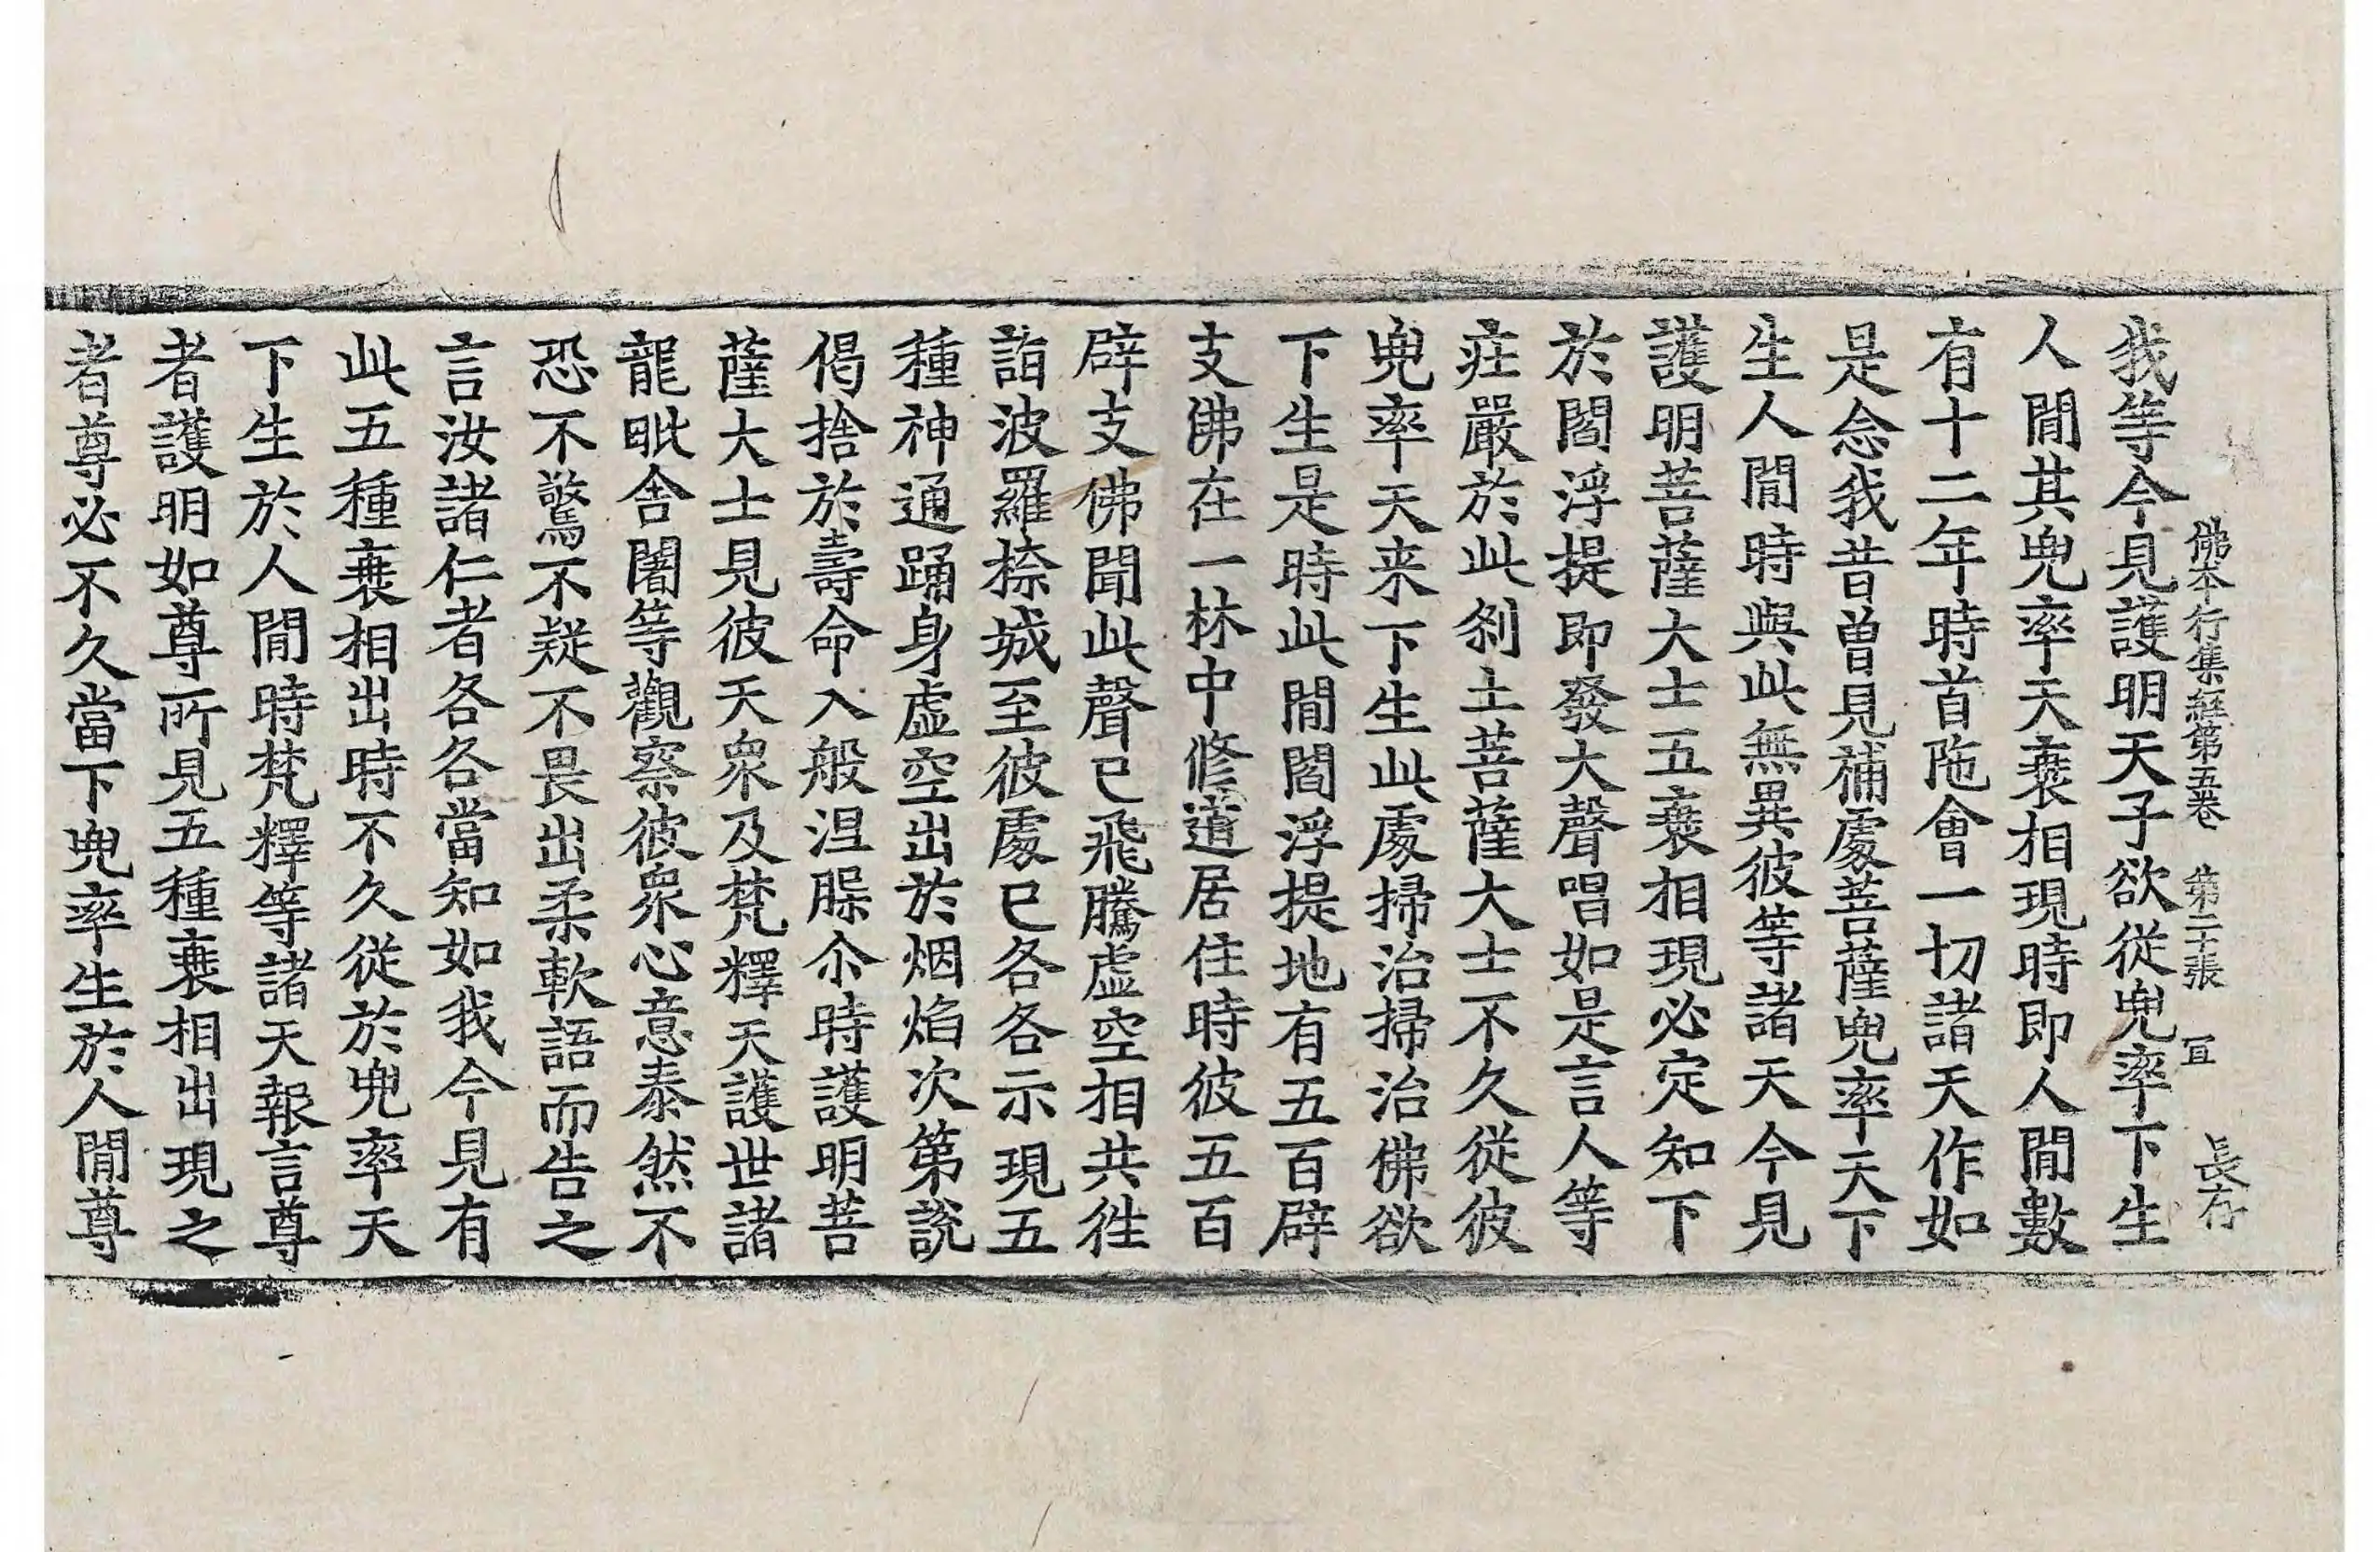 佛本行集經第五卷　第二十張　冝　長存
我等今見護明天子欲從兜率下生
人閒其兜率天衰相現時即人閒數
有十二年時首陁會一切諸天作如
是念我昔曾見補處菩薩兜率天下
生人閒時與此無異彼等諸天今見
護明菩薩大士五衰相現必定知下
於閻浮提即發大聲唱如是言人等
莊嚴於此剎土菩薩大士不久從彼
兜率天来下生此處掃治掃治佛欲
下生是時此閒閻浮提地有五百辟
支佛在一林中修道居住時彼五百
辟支佛聞此聲已飛騰虛空相共徃
詣波羅㮈城至彼處已各各示現五
種神通踊身虛空出於烟焰次第說
偈捨於壽命入般涅槃尒時護明菩
薩大士見彼天衆及梵釋天護世諸
龍毗舍闍等觀察彼衆心意泰然不
恐不驚不疑不畏出柔軟語而告之
言汝諸仁者各各當知如我今見有
此五種衰相出時不久從於兜率天
下生於人閒時梵釋等諸天報言尊
者護明如尊所見五種衰相出現之
者尊必不久當下兜率生於人閒尊